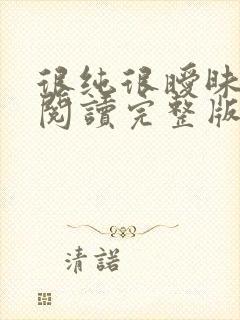 很純很曖昧
閱讀完整版
清諾